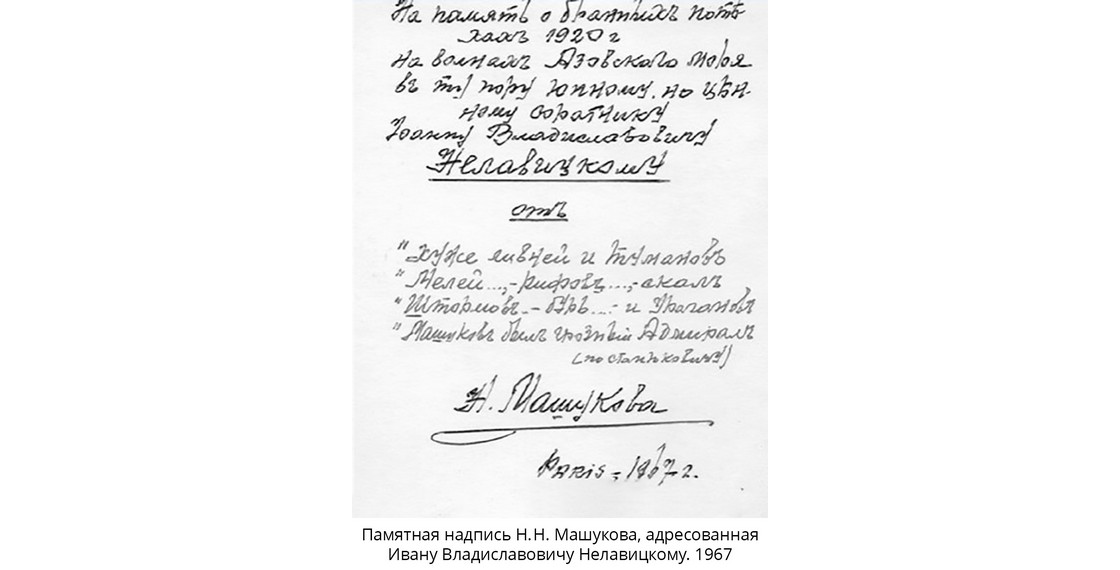 На память о бранныхъ потѣ-
хахъ 1920 г
на волнахъ Азовского моря
въ ту пору юнному, но цѣн-
ному соратнику
Іоанну Владиславовичу
Нелавицкому
отъ
"Хуже ливней и тумановъ
"Мелей...,-рифовъ...,-скалъ
"Штормовъ.-бурь...- и Урагановъ
"Машуковъ былъ грозный Адмиралъ
(по станюковичу)
Н. Машукова
Paris - 1967 г.
Памятная надпись Н. Н. Машукова, адресованная
Ивану Владиславовичу Нелавицкому. 1967